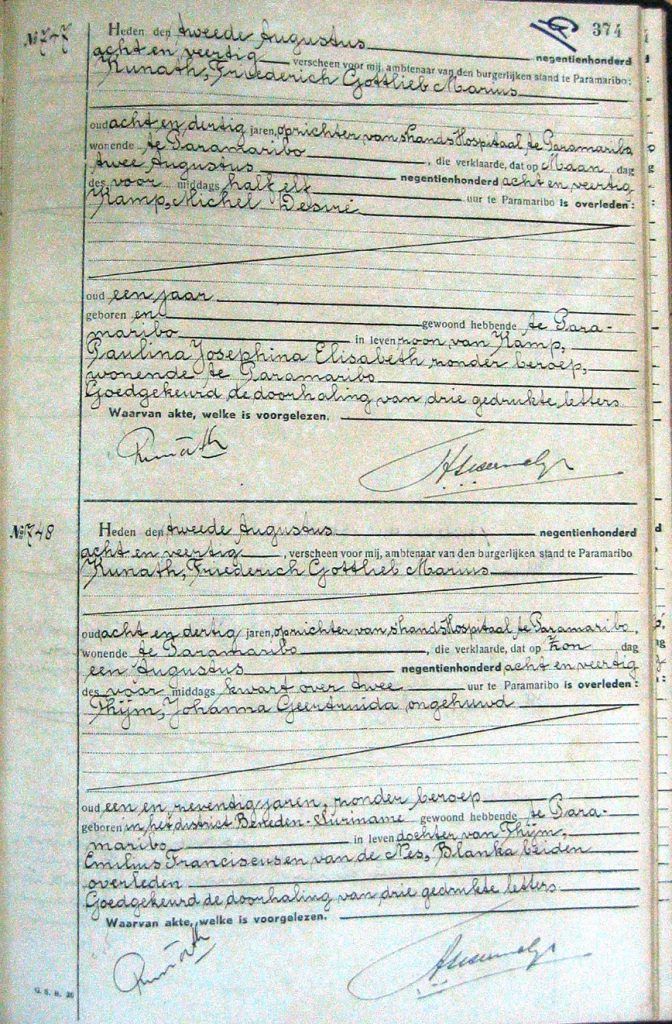 374
№ 747
Heden den tweede Augustus negentienhonderd
acht en veertig verscheen voor mij, ambtenaar van den burgerlijken stand te Paramaribo:
Kunath, Friederich Gottlieb Marius
oud acht en dertig jaren, oprichter van 's Lands Hospitaal te Paramaribo
wonende te Paramaribo, die verklaarde, dat op Maan dag
twee Augustus negentienhonderd acht en veertig
des voor middags half elf uur te Paramaribo is overleden:
Kamp, Michel Desiré
oud een jaar
geboren en gewoond hebbende te Para-
maribo in leven zoon van Kamp,
Paulina Josephina Elisabeth zonder beroep,
wonende te Paramaribo
Goedgekeurd de doorhaling van drie gedrukte letters
Waarvan akte, welke is voorgelezen.
Kunath
№ 748
Heden den tweede Augustus negentienhonderd
acht en veertig, verscheen voor mij, ambtenaar van den burgerlijken stand te Paramaribo
Kunath, Friederich Gottlieb Marius
oud acht en dertig jaren, oprichter van 's Lands Hospitaal te Paramaribo,
wonende te Paramaribo, die verklaarde, dat op Zon dag
een Augustus negentienhonderd acht en veertig
des vóór middags kwart over twee uur te Paramaribo is overleden:
Thijm, Johanna Geertruida ongehuwd
oud een en zeventig jaren, zonder beroep
geboren in het district Beneden-Suriname gewoond hebbende te Para-
maribo in leven dochter van Thijm,
Emilius Franciscus en van de Nes, Blanka beiden
overleden
Goedgekeurd de doorhaling van drie gedrukte letters
Waarvan akte, welke is voorgelezen.
Kunath
G. S. B. 26